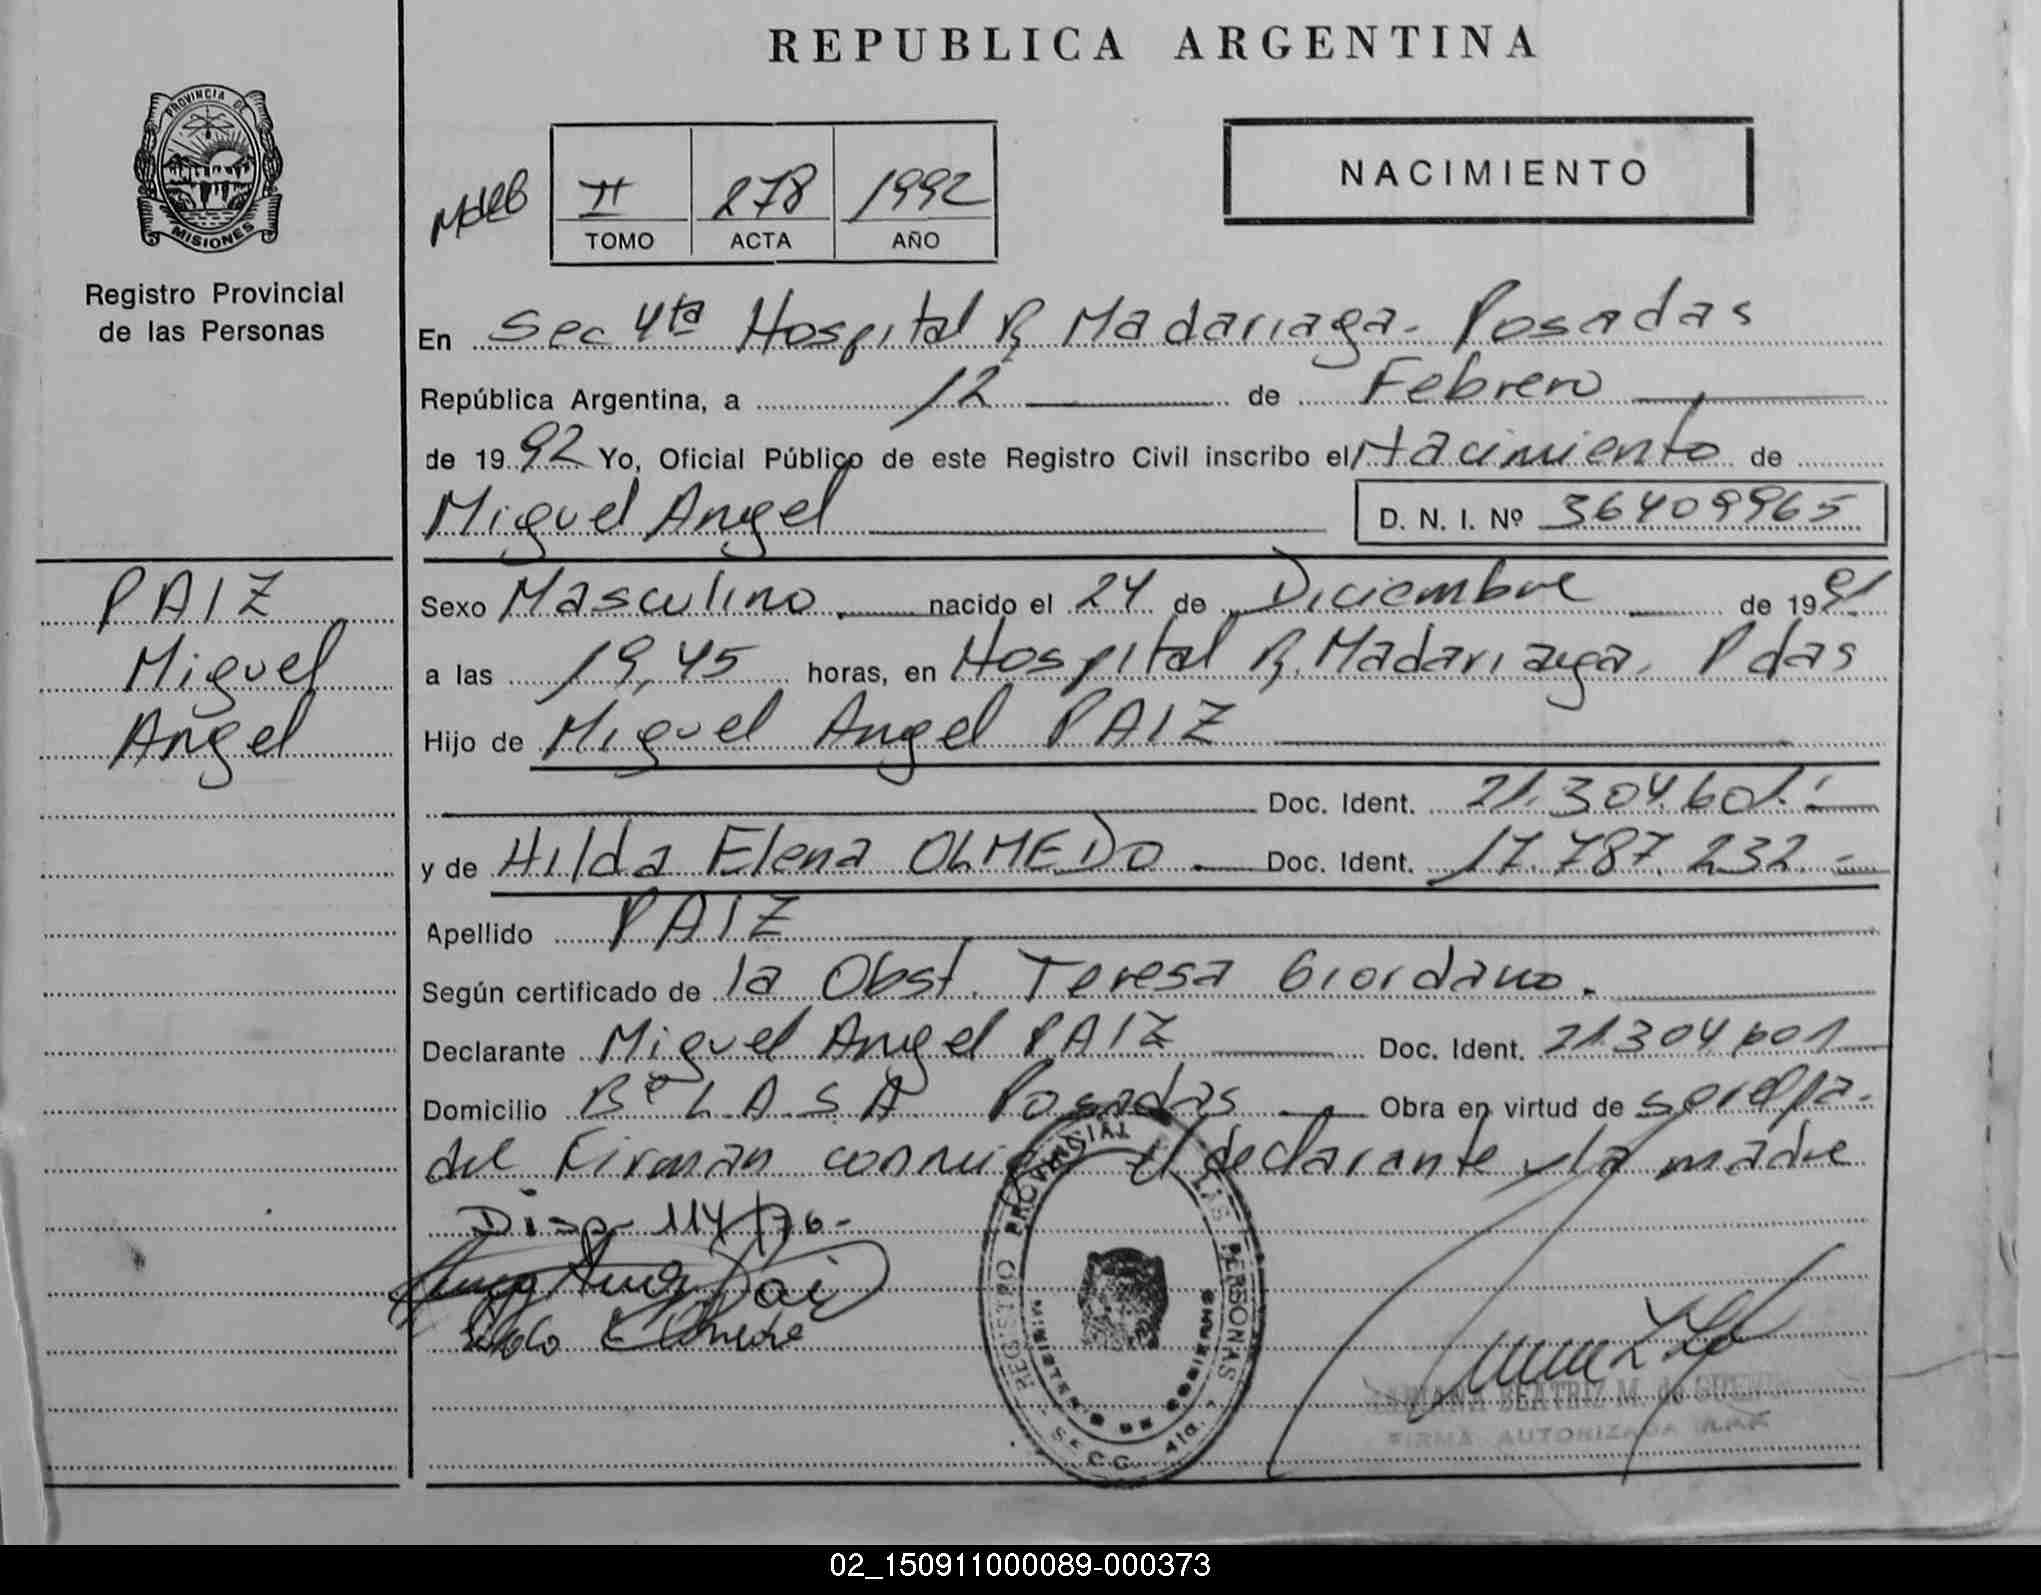 REPUBLICA ARGENTINA
PROVINCIA DE
MISIONES
Registro Provincial
de las Personas
II 278 1992
TOMO ACTA AÑO
NACIMIENTO
En Sec 4ta Hospital R. Madariaga. Posadas
República Argentina, a 12 de Febrero
de 1992 Yo, Oficial Público de este Registro Civil inscribo el Nacimiento de
Miguel Angel D. N. I. Nº 36409965
PAIZ
Miguel
Angel
Sexo Masculino nacido el 24 de Diciembre de 1991
a las 19,45 horas, en Hospital R. Madariaga. Pdas
Hijo de Miguel Angel PAIZ
Doc. Ident. 21.304.601.-
y de Hilda Elena OLMEDO Doc. Ident. 17.787.232.-
Apellido PAIZ
Según certificado de la Obst. Teresa Giordano.
Declarante Miguel Angel PAIZ Doc. Ident. 21.304.601
Domicilio Bº L.A.S.A Posadas Obra en virtud de
del Firman el declarante y la madre
Disp. 114/76-
REGISTRO PROVINCIAL LAS PERSONAS
MINISTERIO DE GOBIERNO
SECC. 4ta.
BEATRIZ M. de
FIRMA AUTORIZADA
02_150911000089-000373